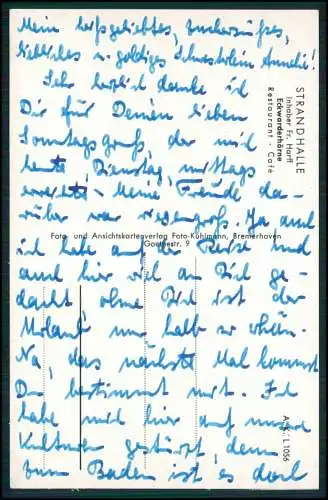 Mein heißgeliebtes, zuckersüßes,
liebliches u. goldiges Schwesterlein Annelie!
Sehr herzlich danke ich
Dir für Deinen lieben
Sonntagsgruß, der mich
heute, Dienstag, mittags
erreichte. Meine Freude da-
rüber war riesengroß. Ja auch
ich habe auf der Reise und
auch hier viel an Dich ge-
dacht. Ohne Dich ist der
Urlaub nur halb so schön.
Na, das nächste Mal kommst
Du bestimmt mit. Ich
habe mich hier auf unsere
Kulturen gestürzt, denn
zum Baden ist es doch
STRANDHALLE
Inhaber Fr. Harff
Eckwarderhörne
Restaurant - Café
Foto- und Ansichtskartenverlag Foto-Kuhlmann, Bremerhaven
Goethestr. 9
L 1056